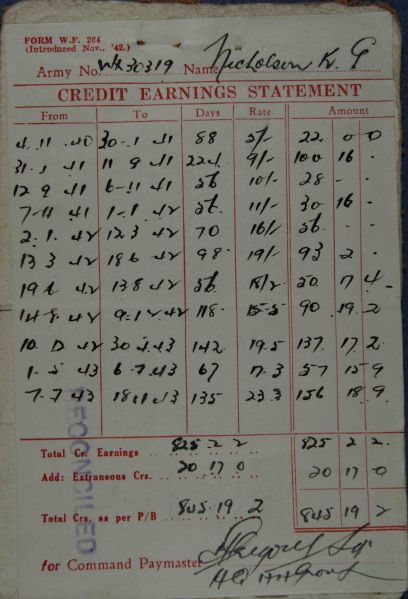 FORM W.F. 264
(Introduced Nov., '42.)
Army No. WX30319 Name Nicholson K. G
CREDIT EARNINGS STATEMENT
From To Days Rate Amount
4.11.40 30.1.41 88 5/- 22 0 0
31.1.41 11 9 41 224 9/- 100 16 -
12 9 41 6-11 41 56 10/- 28 - -
7-11 41 1-1.42 56 11/- 30 16 -
2.1.42 12.3 42 70 16/- 56 -
13 3 42 18 6 42 98 19/- 93 2 -
19 6 42 13 8 42 56 18/2 50 17 4
14-8.42 9-12.42 118 15-5 90 19.2
10 D 42 30 4.43 142 19.5 137.17.2
1-5 43 6-7.43 67 17.3 57 15 9
7-7 43 18 11 43 135 23.3 156 18.9
Total Cr. Earnings 825 2 2 825 2 2
Add: Extraneous Crs. 20 17 0 20 17 0
Total Crs. as per P/B 845.19 2 845 19 2
for Command Paymaster
RECONCILED